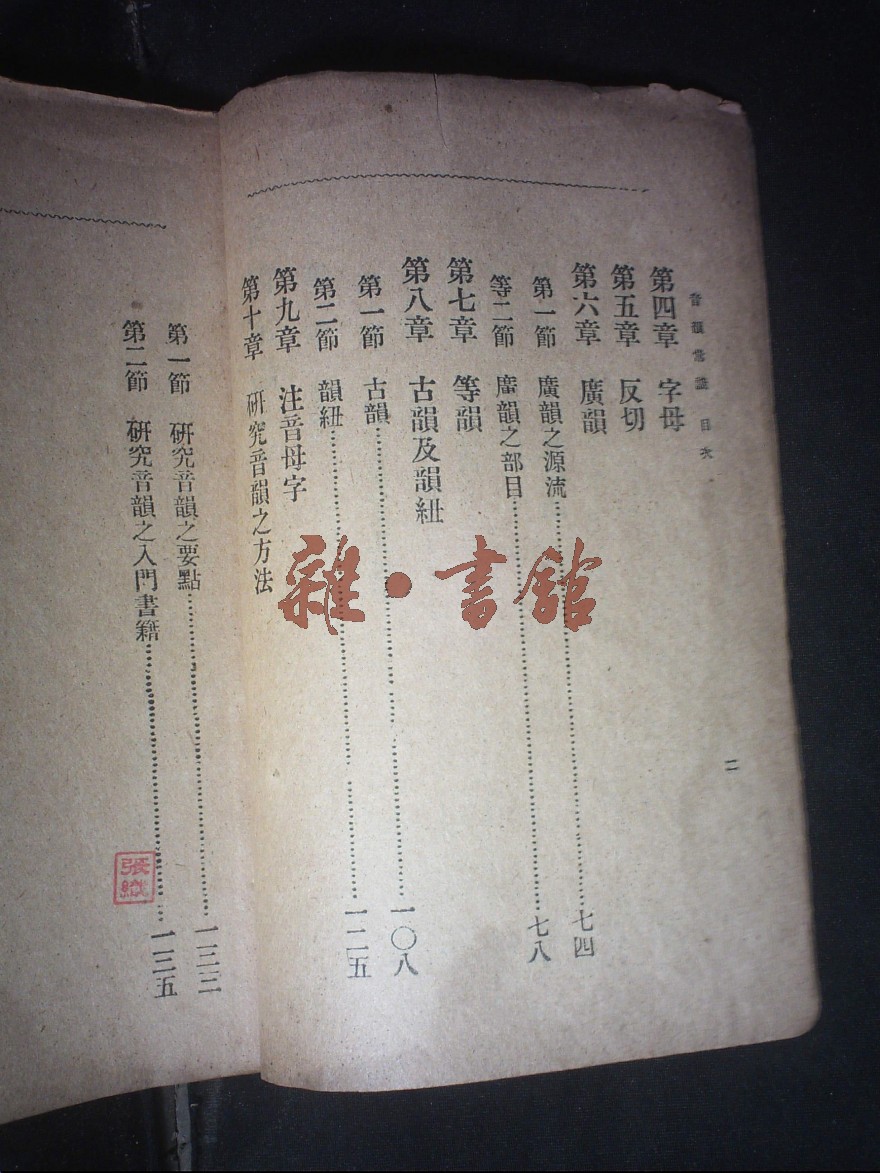 音韻常識 目次
二
第四章 字母
第五章 反切
第六章 廣韻
第一節 廣韻之源流⋯⋯⋯⋯七四
等二節 廣韻之部目⋯⋯⋯⋯七八
第七章 等韻
第八章 古韻及韻紐
第一節 古韻⋯⋯⋯⋯一〇八
第二節 韻紐⋯⋯⋯⋯一二五
第九章 注音母字
第十章 研究音韻之方法
第一節 研究音韻之要點⋯⋯⋯⋯一三三
第二節 研究音韻之入門書籍⋯⋯⋯⋯一三五
雜·書館
張織